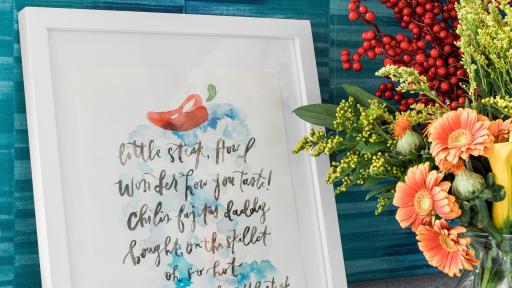 little steak, How I
Wonder how you taste!
Chilis fajitas daddy
bought, on the skillet
oh so hot.